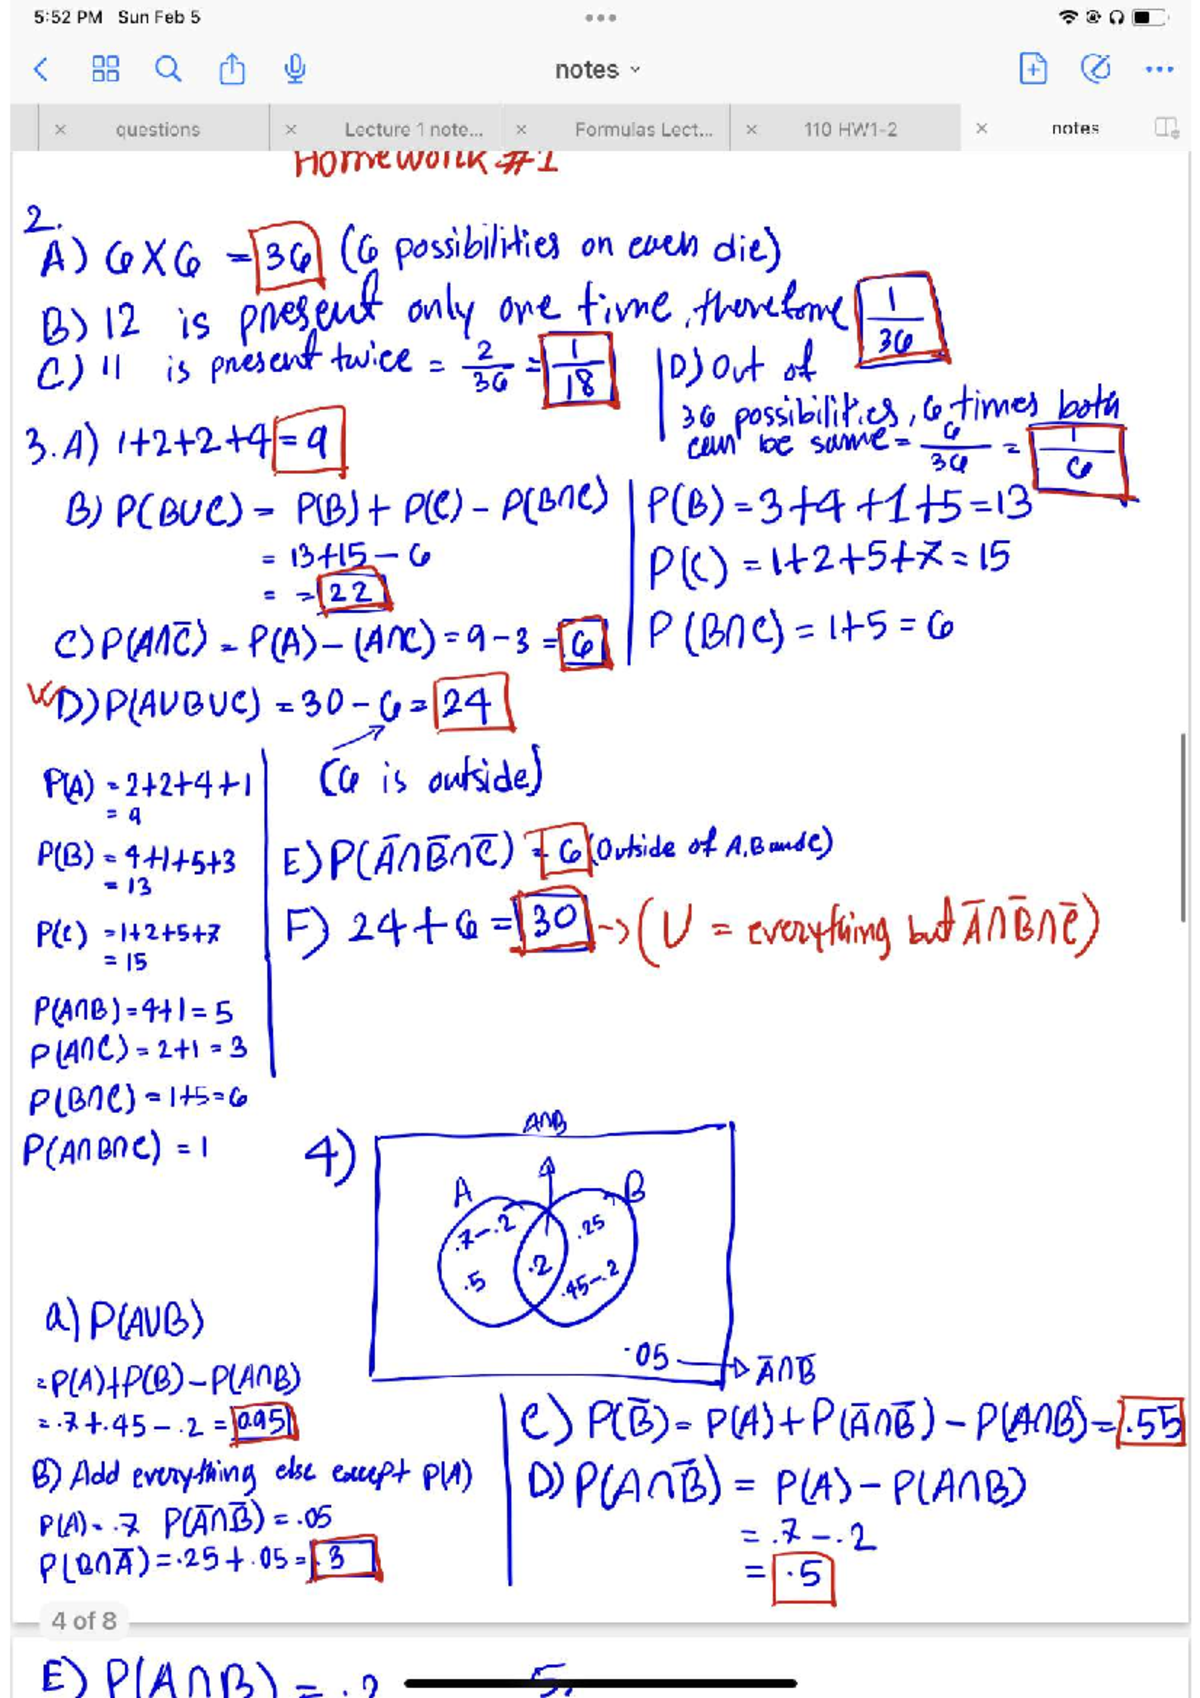 5:52 PM Sun Feb 5
notes
questions
Lecture 1 note...
Formulas Lect...
110 HW1-2
notes
Homework #1
2.
A) 6X6 = 36 (6 possibilities on each die)
B) 12 is present only one time, therefore 1/36
C) 11 is present twice = 2/36 = 1/18
D) Out of
36 possibilities, 6 times both
can be same = 6/36 = 1/6
3. A) 1+2+2+4 = 9
B) P(B∪C) = P(B) + P(C) - P(B∩C)
= 13+15 - 6
= = 22
P(B) = 3+4+1+5 = 13
P(C) = 1+2+5+7 = 15
P(B∩C) = 1+5 = 6
C) P(A∩C̅) = P(A) - (A∩C) = 9-3 = 6
D) P(A∪B∪C) = 30 - 6 = 24
(6 is outside)
P(A) = 2+2+4+1
= 9
P(B) = 4+1+5+3
= 13
P(C) = 1+2+5+7
= 15
P(A∩B) = 4+1 = 5
P(A∩C) = 2+1 = 3
P(B∩C) = 1+5 = 6
P(A∩B∩C) = 1
E) P(A̅∩B̅∩C̅) = 6 (Outside of A, B and C)
F) 24+6 = 30 -> (U = everything but A̅∩B̅∩C̅)
4)
A∩B
A
B
.7-.2
.25
.2
.5
.45-.2
.05
A̅∩B̅
a) P(A∪B)
= P(A)+P(B) - P(A∩B)
= .7+.45 - .2 = 0.95
B) Add everything else except P(A)
P(A) = .7 P(A̅∩B̅) = .05
P(B∩A̅) = .25+.05 = .3
C) P(B̅) = P(A) + P(A̅∩B̅) - P(A∩B) = .55
D) P(A∩B̅) = P(A) - P(A∩B)
= .7 - .2
= .5
4 of 8
E) P(A∩B) = .2
5.